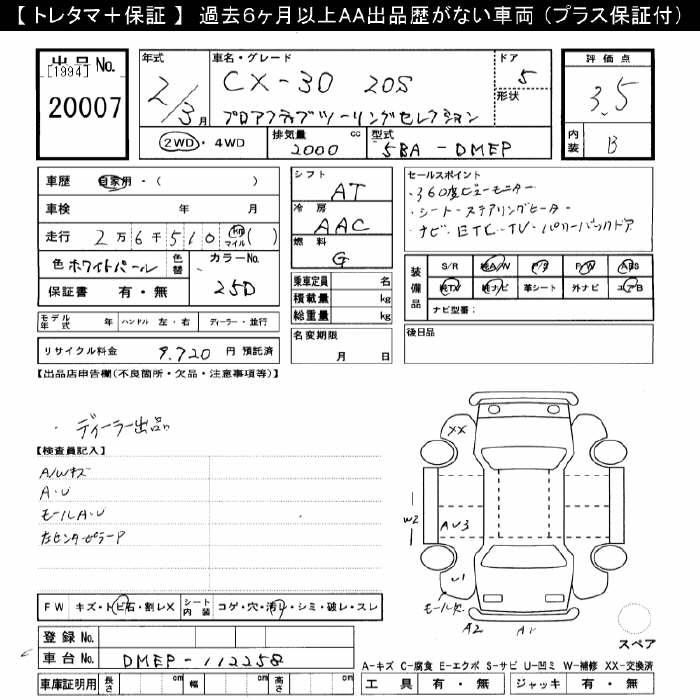 【 トレタマ＋保証 】 過去6ヶ月以上AA出品歴がない車両（プラス保証付）
出品No.
[1994]
20007
年式
2/3月
車名・グレード
CX-30 20S
プロアクティブツーリングセレクション
ドア
5
形状
評価点
3.5
内装
B
2WD・4WD
排気量
2000
cc
型式
5BA-DMEP
車歴 自家用・( )
車検 年 月
走行 2万6千510 km マイル ( )
色 ホワイトパール
色替
カラーNo.
25D
保証書 有・無
シフト
AT
冷房
AAC
燃料
G
乗車定員 名
積載量 kg
総重量 kg
セールスポイント
・360度ビューモニター
・シート・ステアリングヒーター
・ナビ・ETC・TV・パワーバックドア
装備品
S/R 純A/W P/S P/W ABS
純TV 純ナビ 革シート 外ナビ エアB
ナビ型番：
モデル年式 年 ハンドル 左・右 ディーラー・並行
名変期限
月 日
後日品
リサイクル料金 9.720 円 預託済
【出品店申告欄(不良箇所・欠品・注意事項等)】
・ディーラー出品
【検査員記入】
A/Wキズ
A・U
モールA・U
右センターピラーP
XX
W2
AU3
U1
モールズ
A2
A1
スペア
FW キズ・トビ石・割レX
シート内装 コゲ・穴・汚レ・シミ・破レ・スレ
登録No.
車台No. DMEP-112258
車庫証明用 長さ cm 幅 cm 高さ cm
A-キズ C-腐食 E-エクボ S-サビ U-凹ミ W-補修 XX-交換済
工具 有・無 ジャッキ 有・無